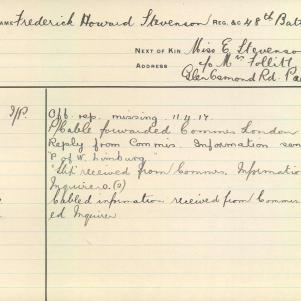 NAME Frederick Howard Stevenson REG. &C 48th Batt
NEXT OF KIN Miss E. Stevenson
ADDRESS c/o Mrs Follitt
Glen Osmond Rd. Pa
I/P. Off. rep. missing 11.4.17.
Cable forwarded Commis London
Reply from Commis. Information sen
"P. of W. Limburg"
"Slip" received from Commis. Informatio
Inquirer. (2)
Cabled information received from Commis
ed Inquirer